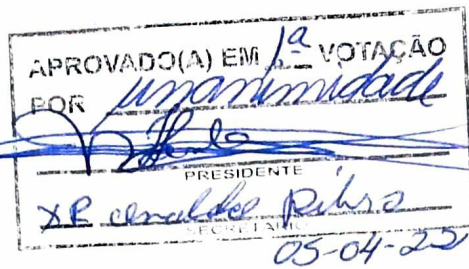 APROVADO(A) EM 1ª VOTAÇÃO
POR unanimidade
PRESIDENTE
SECRETARIO
05-04-22